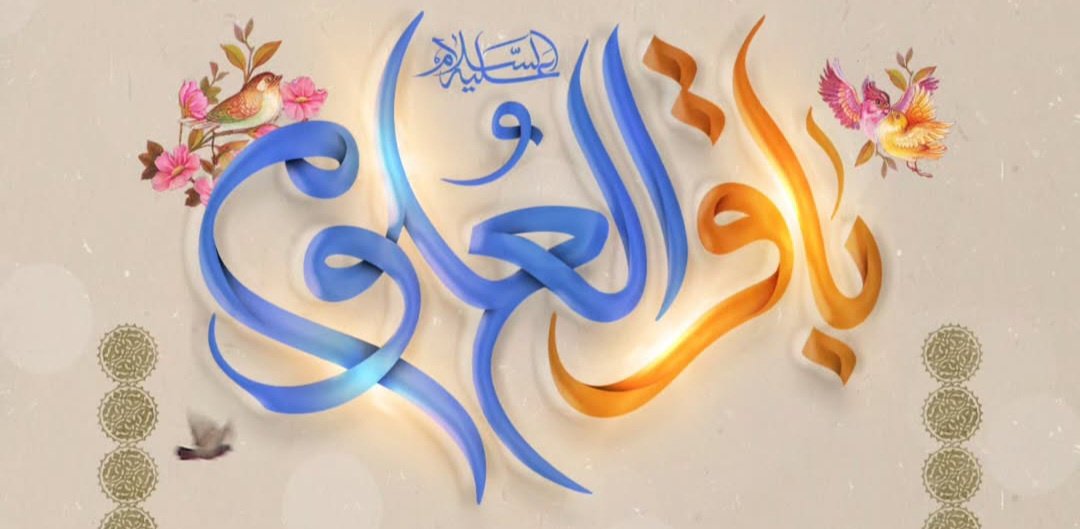 باقر العُلوم
علیه السلام